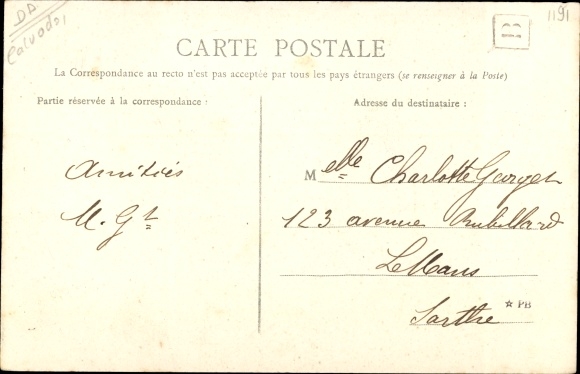 DA
Calvados
1191
B
CARTE POSTALE
La Correspondance au recto n'est pas acceptée par tous les pays étrangers (se renseigner à la Poste)
Partie réservée à la correspondance :
Adresse du destinataire :
Amitiés
M. Gt
Melle Charlotte Georget
123 avenue Rubillard
Le Mans
Sarthe
☆ PB